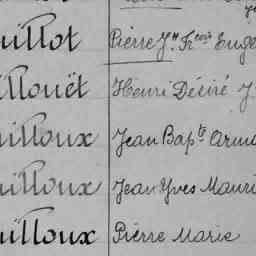 uillot Pierre Jh Frcois Euge
illouët Henri Désiré J
uilloux Jean Bapte Arma
uilloux Jean Yves Mauri
uilloux Pierre Marie